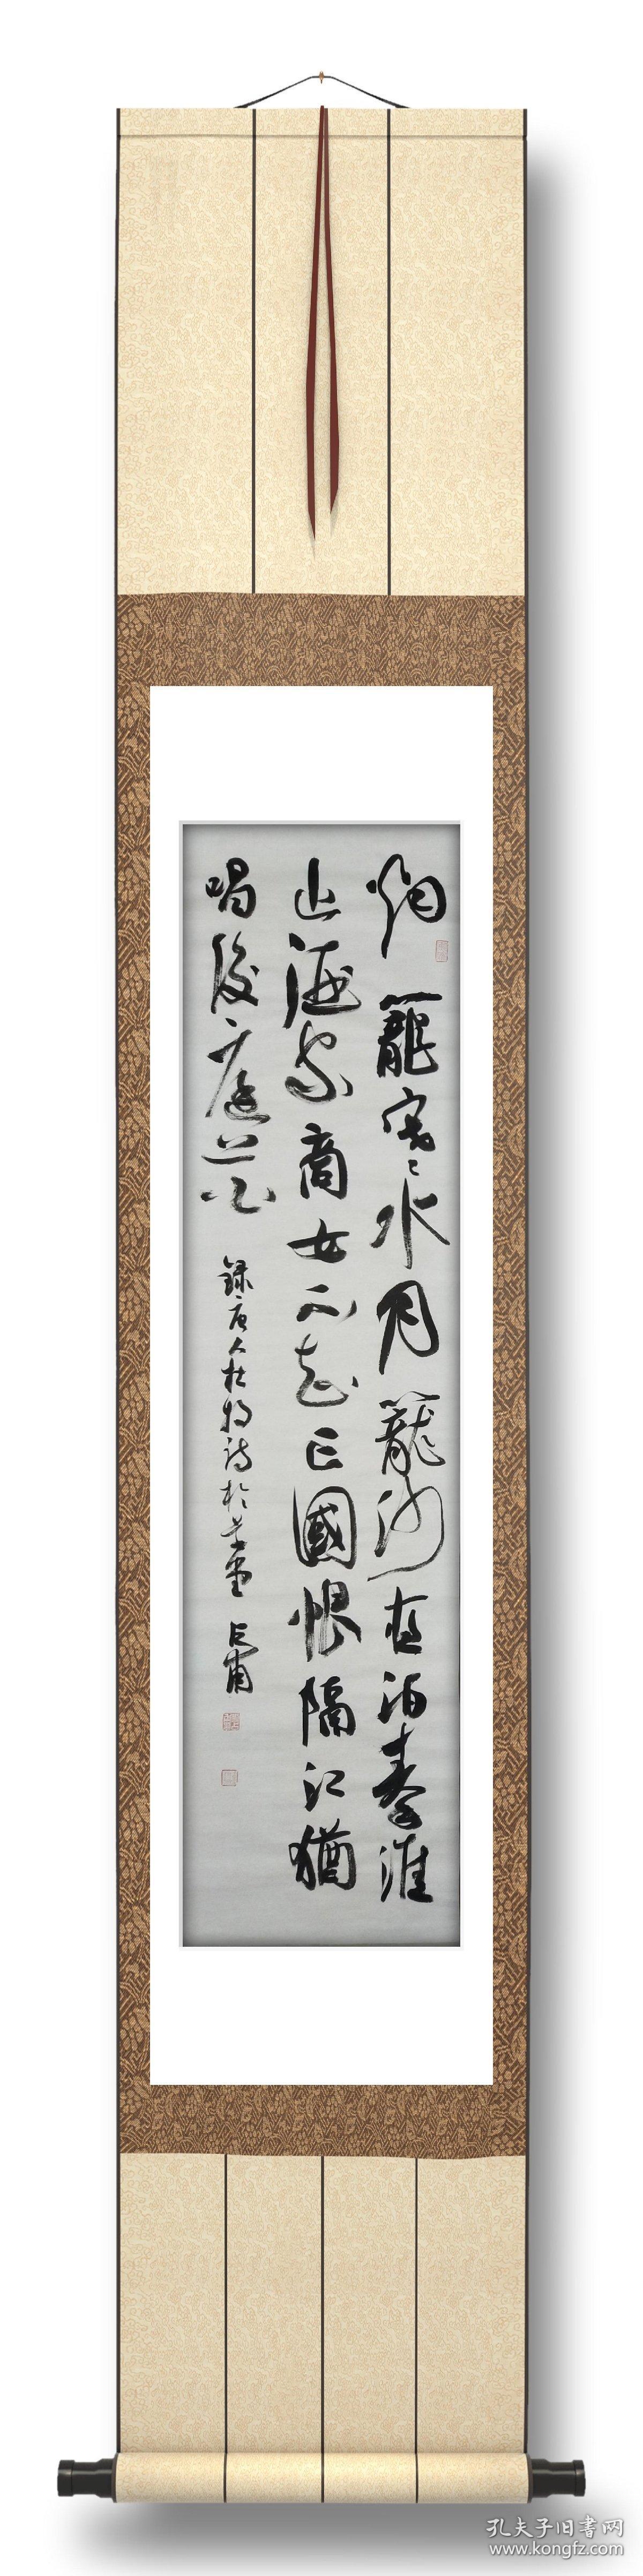 烟籠寒水月籠沙夜泊秦淮
近酒家商女不知亡國恨隔江猶
唱後庭花 録唐人杜牧詩於
孔夫子旧書网
www.kongfz.com